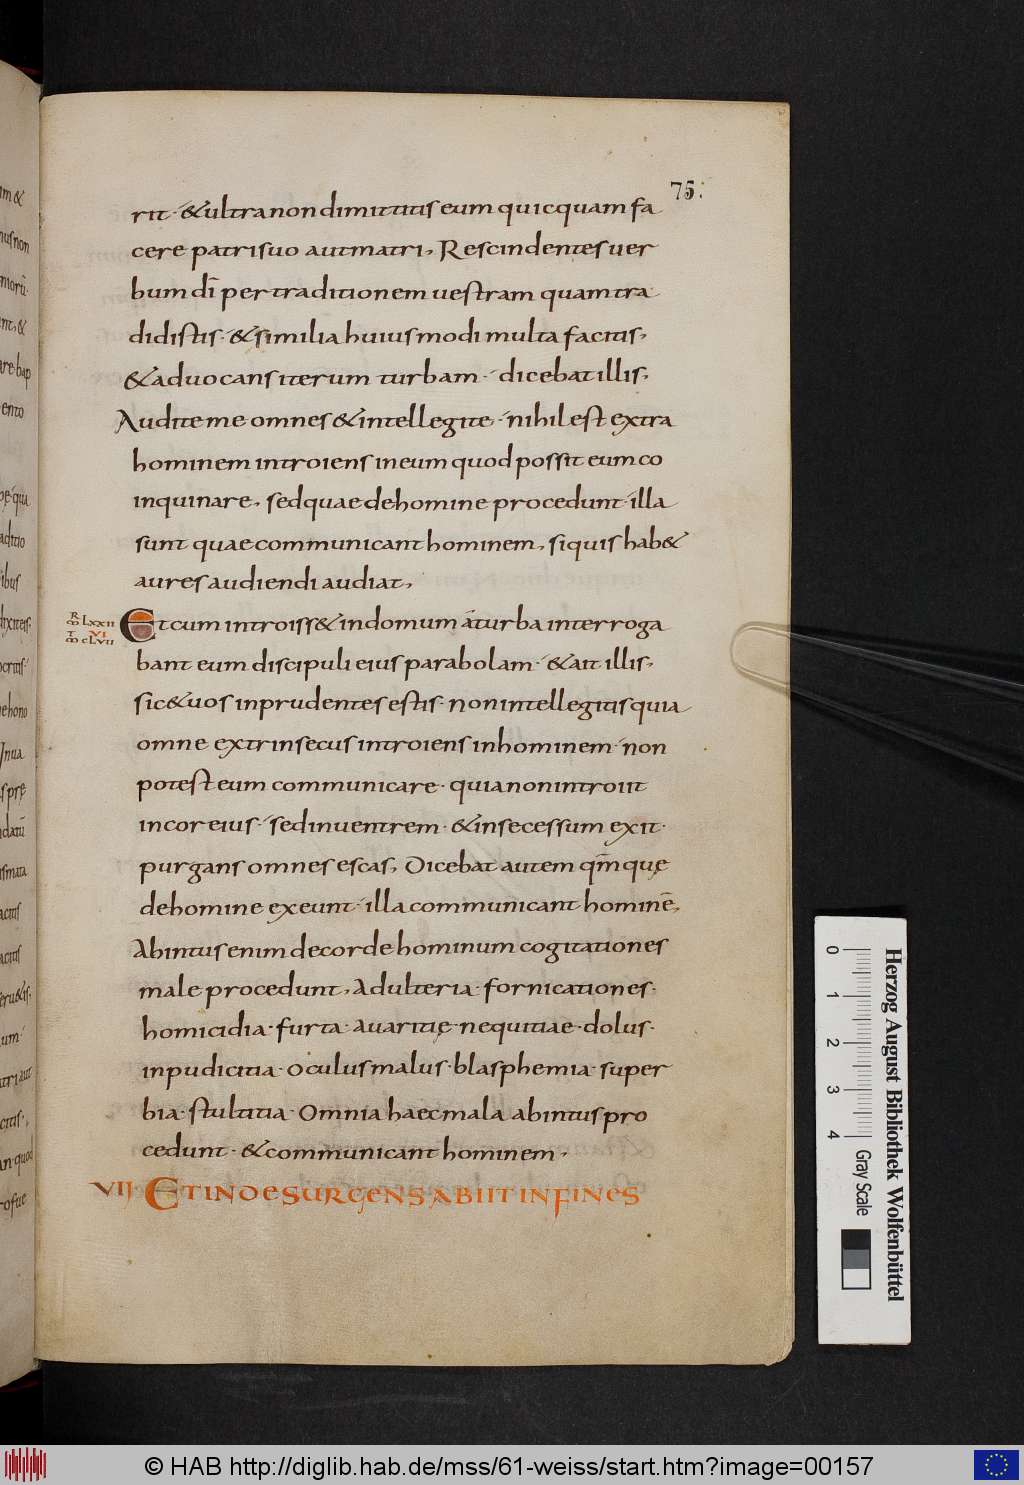 75.
rit· & ultra non dimittitis eum quicquam fa
cere patri suo aut matri, Rescindentes uer
bum dī per traditionem uestram quam tra
didistis· & similia huiusmodi multa facitis,
& aduocans iterum turbam· dicebat illis,
Audite me omnes & intellegite, nihil est extra
hominem introiens in eum quod possit eum co
inquinare, sed quae de homine procedunt illa
sunt quae communicant hominem, si quis hab&
aures audiendi audiat,
R
ω LXXII
T VI
ω cLVII
Et cum introiss& in domum á turba interroga
bant eum discipuli eius parabolam· & ait illis,
sic & uos inprudentes estis· non intellegitis quia
omne extrinsecus introiens in hominem· non
potest eum communicare· quia non introiit
in cor eius· sed in uentrem· & in secessum exit·
purgans omnes escas, Dicebat autem qm̄ quę
de homine exeunt· illa communicant hominē,
Ab intus enim de corde hominum cogitationes
male procedunt, Adulteria· fornicationes·
homicidia· furta· auaritię· nequitiae· dolus·
inpudicitia· oculus malus· blasphemia· super
bia· stultitia· Omnia haec mala ab intus pro
cedunt· & communicant hominem,
VII ET INDE SURGENS ABIIT IN FINES
Herzog August Bibliothek Wolfenbüttel
0 1 2 3 4 Gray Scale
© HAB http://diglib.hab.de/mss/61-weiss/start.htm?image=00157